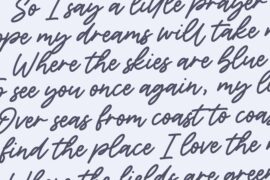 So I say a little prayer
ope my dreams will take m
Where the skies are blue
o see you once again, my l
Over seas from coast to coas
find the place I love the m
Where the fields are green